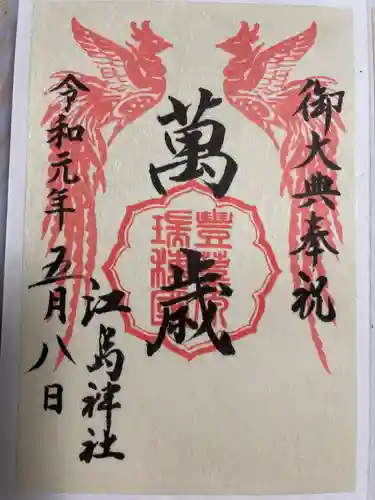 御大典奉祝
萬歳
豊葦原
瑞穂国
江島神社
令和元年五月八日